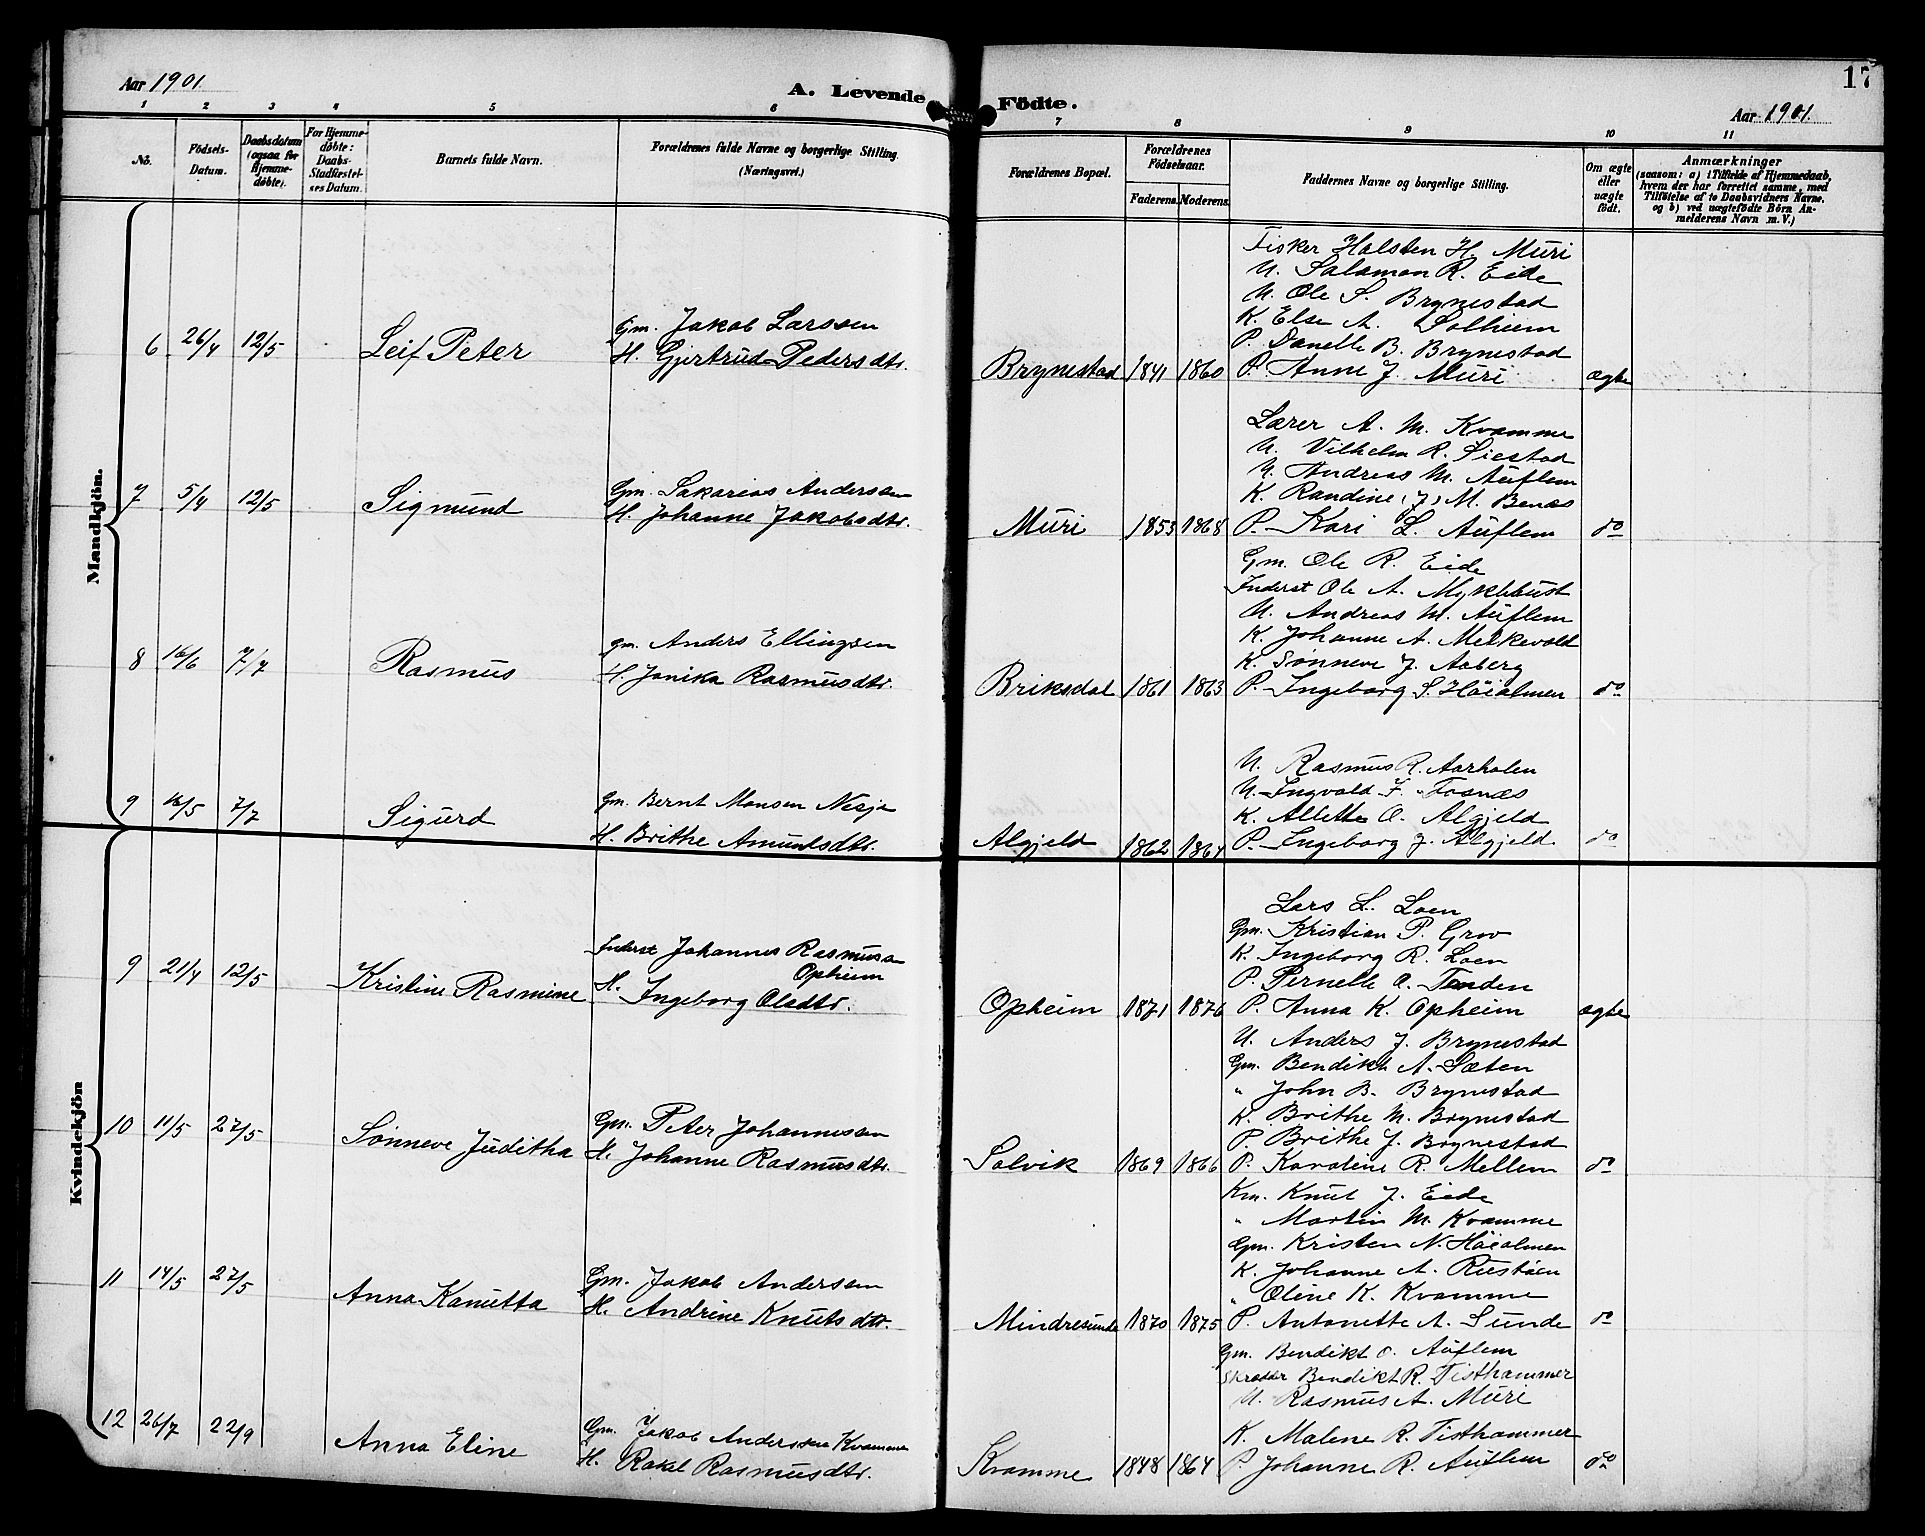 Aar 1901.
A. Levende Födte.
Aar 1901.
17
1 2 3 4 5 6 7 8 9 10 11
No.
Födsels-Datum.
Daabsdatum (ogsaa for Hjemmedöbte).
For Hjemmedöbte: Daabs-Stadfæstelses Datum.
Barnets fulde Navn.
Forældrenes fulde Navne og borgerlige Stilling. (Næringsvei.)
Forældrenes Bopæl.
Forældrenes Födselsaar.
Faderens. Moderens.
Faddernes Navne og borgerlige Stilling.
Om ægte eller uægte födt.
Anmærkninger
(saasom: a) i Tilfælde af Hjemmedaab,
hvem der har forrettet samme, med
Tilföielse af to Daabsvidners Navne,
og b) ved uægtefödte Börn An-
melderens Navn m. V.)
Mandkjön.
Fisker Halsten H. Muri
U. Salamon R. Eide
U. Ole S. Brynestad
K. Else A. Solheim
P. Danelle B. Brynestad
6 26/4 12/5 Leif Peter
Gm. Jakob Larssen
H. Gjertrud Pedersdtr.
Brynestad 1841 1860 P. Anne J. Muri ægte
Lærer A. M. Kvamme
U. Vilhelm R. Siestad
U. Andreas M. Auflem
K. Randine J. M. Benæs
7 5/4 12/5 Sigmund
Gm. Sakarias Anderssen
H. Johanne Jakobsdtr.
Muri 1853 1868 P. Kari L. Auflem do
Gm. Ole R. Eide
Inderst Ole A. Myklebust
U. Andreas M. Auflem
K. Johanne A. Melkevold
K. Sønneve J. Aaberg
8 16/6 7/7 Rasmus
Gm. Anders Ellingsen
H. Jonika Rasmusdtr.
Briksdal 1861 1863 P. Ingeborg S. Höialmen do
U. Rasmus R. Aarholen
U. Ingvald F. Tosnæs
K. Allette O. Algjeld
9 16/5 7/7 Sigurd
Gm. Bernt Monsen Nesje
H. Brithe Amundsdtr.
Algjeld 1862 1864 P. Ingeborg J. Algjeld do
Kvindekjön
Lars L. Loen
Gm. Kristian P. Grov
K. Ingeborg R. Loen
P. Pernelle A. Tenden
9 21/4 12/5 Kristine Rasmine
Inderst Johannes Rasmuss.
Opheim
H. Ingeborg Olsdtr.
Opheim 1871 1876 P. Anna K. Opheim ægte
U. Anders J. Brynestad
Gm. Bendikt A. Sæten
" John B. Brynestad
K. Brithe M. Brynestad
P. Brithe J. Brynestad
10 11/5 27/5 Sønneve Juditha
Gm. Peter Johannessen
H. Johanne Rasmusdtr.
Solvik 1869 1866 P. Karoline R. Mellem do
Km. Knut J. Eide
" Martin M. Kvamme
Gm. Kristen N. Höialmen
K. Johanne A. Rustöen
" Oline K. Kvamme
11 14/5 27/5 Anna Kanutta
Gm. Jakob Anderssen
H. Andrine Knutsdtr.
Mindresunde 1870 1875 P. Antonette A. Sunde do
Gm. Bendikt O. Auflem
Skrædder Bendikt R. Tisthammer
U. Rasmus A. Muri
K. Malene R. Tisthammer
12 26/7 22/9 Anna Eline
Gm. Jakob Anderssen Kvamme
H. Rakel Rasmusdtr.
Kvamme 1848 1864 P. Johanne R. Auflem do